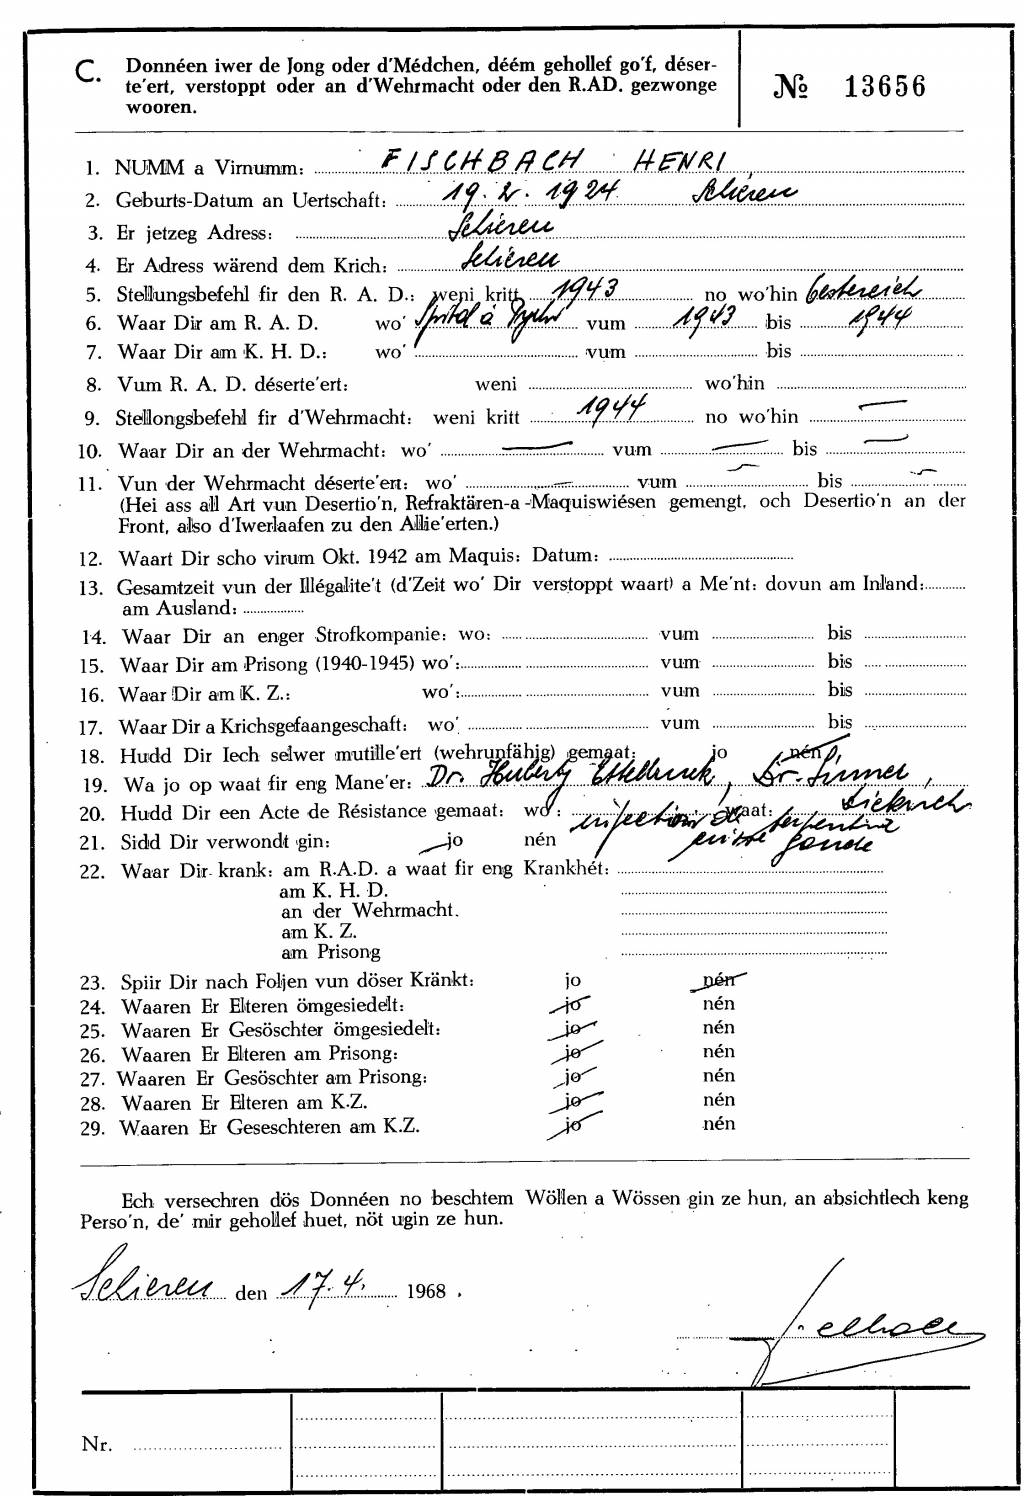 C. Donnéen iwer de Jong oder d'Médchen, déém gehollef go'f, déser-
te'ert, verstoppt oder an d'Wehrmacht oder den R.AD. gezwonge
wooren.
№ 13656
1. NUMM a Virnumm: FISCHBACH HENRI
2. Geburts-Datum an Uertschaft: 19. 2. 1924 Schieren
3. Er jetzeg Adress: Schieren
4. Er Adress wärend dem Krich: Schieren
5. Stellungsbefehl fir den R. A. D.: weni kritt 1943 no wo'hin Oestereich
6. Waar Dir am R. A. D. wo' Spital à vum 1943 bis 1944
7. Waar Dir am K. H. D.: wo' vum bis
8. Vum R. A. D. déserte'ert: weni wo'hin
9. Stellongsbefehl fir d'Wehrmacht: weni kritt 1944 no wo'hin —
10. Waar Dir an der Wehrmacht: wo' — vum — bis —
11. Vun der Wehrmacht déserte'ert: wo' — vum — bis —
(Hei ass all Art vun Desertio'n, Refraktären-a-Maquiswiésen gemengt, och Desertio'n an der
Front, also d'Iwerlaafen zu den Allie'erten.)
12. Waart Dir scho virum Okt. 1942 am Maquis: Datum:
13. Gesamtzeit vun der Illégalite't (d'Zeit wo' Dir verstoppt waart) a Me'nt: dovun am Inland:
am Ausland:
14. Waar Dir an enger Strofkompanie: wo: vum bis
15. Waar Dir am Prisong (1940-1945) wo': vum bis
16. Waar Dir am K. Z.: wo': vum bis
17. Waar Dir a Krichsgefaangeschaft: wo' vum bis
18. Hudd Dir Iech selwer mutille'ert (wehrunfähig) gemaat: jo nén
19. Wa jo op waat fir eng Mane'er: Dr. Huberty Ettelbruck, Dr.
20. Hudd Dir een Acte de Résistance gemaat: wo' waat: Diekirch
injection de terpentine
21. Sidd Dir verwondt gin: jo nén cuisse gauche
22. Waar Dir krank: am R.A.D. a waat fir eng Krankhét:
am K. H. D.
an der Wehrmacht.
am K. Z.
am Prisong
23. Spiir Dir nach Foljen vun döser Kränkt: jo nén
24. Waaren Er Elteren ömgesiedelt: jo nén
25. Waaren Er Gesöschter ömgesiedelt: jo nén
26. Waaren Er Elteren am Prisong: jo nén
27. Waaren Er Gesöschter am Prisong: jo nén
28. Waaren Er Elteren am K.Z. jo nén
29. Waaren Er Geseschteren am K.Z. jo nén
Ech versechren dös Donnéen no beschtem Wöllen a Wössen gin ze hun, an absichtlech keng
Perso'n, de' mir gehollef huet, nöt ugin ze hun.
Schieren den 17. 4. 1968.
Nr.